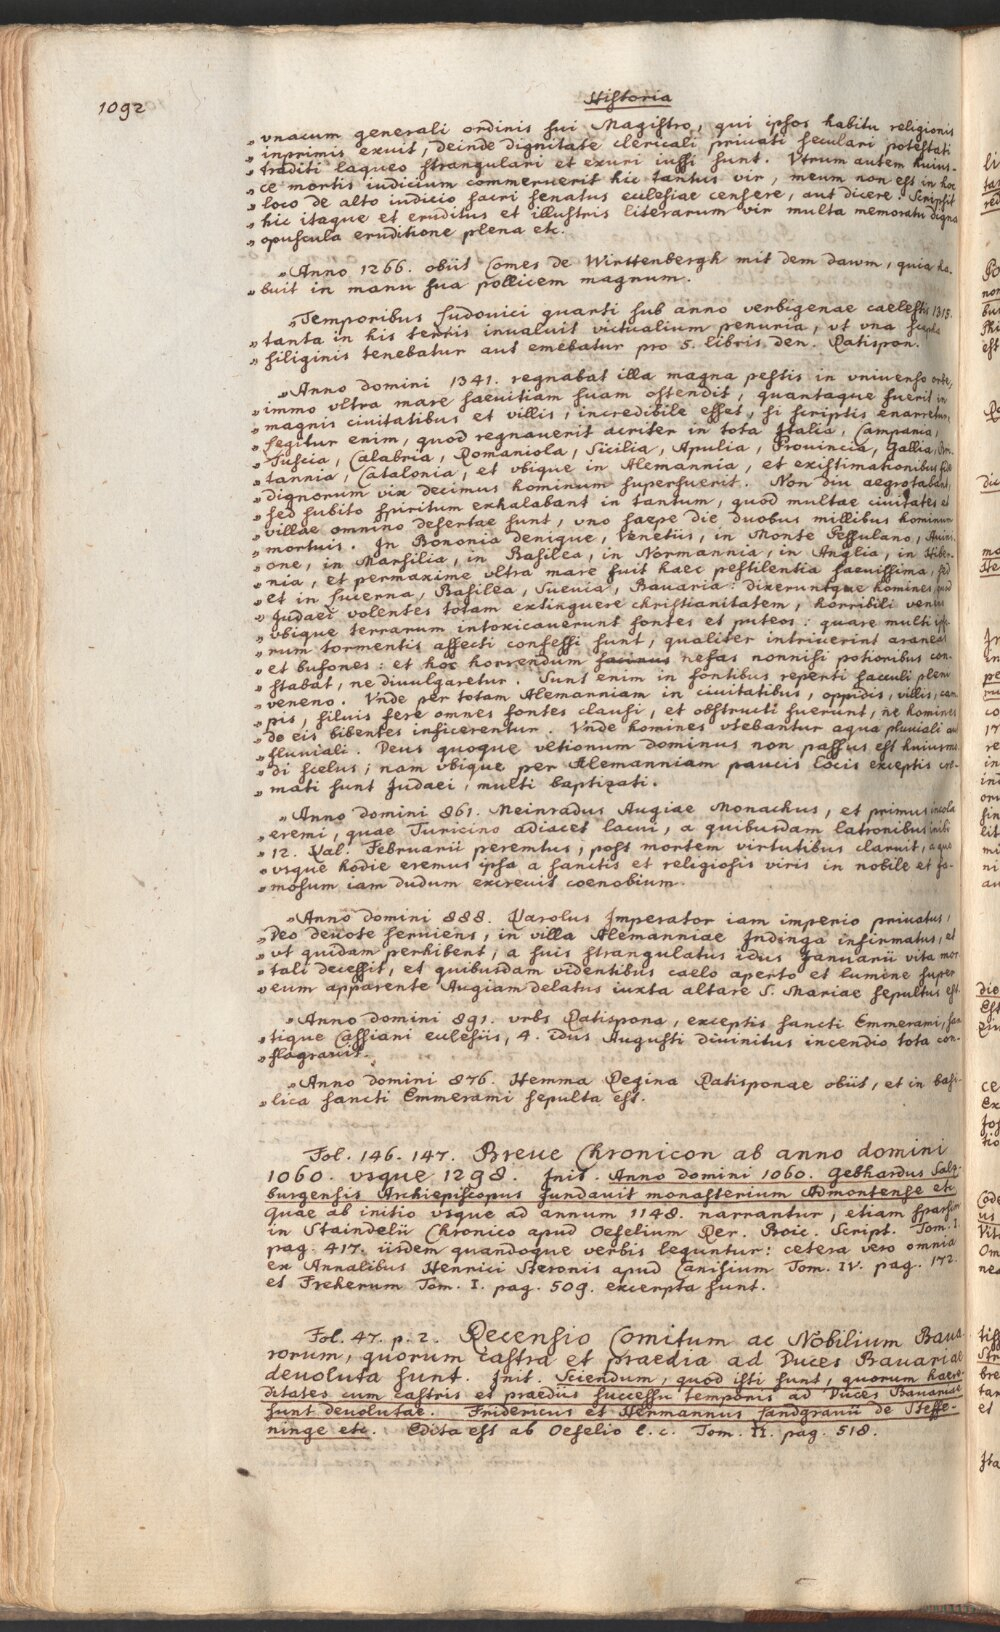 1092
Historia
„ vnacum generali ordinis sui Magistro, qui ipsos habitu religionis
„ inprimis exuit, deinde dignitate clericali priuati seculari potestati
„ traditi laqueo strangulari et exuri iussi sunt. Vtrum autem huius-
„ ce mortis iudicium commeruerit hic tantus vir, meum non est in hoc
„ loco de alto iudicio sacri senatus ecclesiae censere, aut dicere. Scripsit
„ hic itaque et eruditus et illustris literarum vir multa memoratu digna
„ opuscula eruditione plena etc.
„ Anno 1266. obiit Comes de Wirttenbergh mit dem dawm, quia ha-
„ buit in manu sua pollicem magnum.
„ Temporibus Ludouici quarti sub anno verbigenae caelestis 1315.
„ tanta in his terris inualuit victualium penuria, vt vna
„ siliginis tenebatur aut emebatur pro 5. libris den. Ratispon.
„ Anno domini 1341. regnabat illa magna pestis in vniuerso orbe,
„ immo vltra mare saeuitiam suam ostendit, quantaque fuerit in
„ magnis ciuitatibus et villis, incredibile esset, si scriptis enarretur,
„ Legitur enim, quod regnauerit acriter in tota Italia, Campania,
„ Tuscia, Calabria, Romaniola, Sicilia, Apulia, Prouincia, Gallia, Bri-
„ tannia, Catalonia, et vbique in Alemannia, et existimationibus fide
„ dignorum vix decimus hominum superfuerit. Non diu aegrotabant,
„ sed subito spiritum exhalabant in tantum, quod multae ciuitates et
„ villae omnino desertae sunt, vno saepe die duobus millibus hominum
„ mortuis. In Bononia denique, Venetiis, in Monte Pessulano, Auini-
„ one, in Marsilia, in Basilea, in Normannia, in Anglia, in Hiber-
„ nia, et permaxime vltra mare fuit haec pestilentia saeuissima, sed
„ et in Lucerna, Basilea, Sueuia, Bauaria: dixeruntque homines, quod
„ Judaei volentes totam extinguere christianitatem, horribili veneno
„ vbique terrarum intoxicauerunt fontes et puteos: quare multi ipso-
„ rum tormentis affecti confessi sunt, qualiter intriuerint araneas
„ et bufones: et hoc horrendum facinus nefas nonnisi potioribus con-
„ stabat, ne diuulgaretur. Sunt enim in fontibus reperti sacculi pleni
„ veneno. Vnde per totam Alemanniam in ciuitatibus, oppidis, villis, cam-
„ pis, siluis fere omnes fontes clausi, et obstructi fuerunt, ne homines
„ de eis bibentes inficerentur. Vnde homines vtebantur aqua pluuiali aut
„ fluuiali. Deus quoque vltionum dominus non passus est huiusmo-
„ di scelus; nam vbique per Alemanniam paucis locis exceptis cre-
„ mati sunt Judaei, multi baptizati.
„ Anno domini 861. Meinradus Augiae Monachus, et primus incola
„ eremi, quae Turicino adiacet lacui, a quibusdam latronibus inibi
„ 12. Kal. Februarii peremtus, post mortem virtutibus claruit, a quo
„ vsque hodie eremus ipsa a sanctis et religiosis viris in nobile et fa-
„ mosum iam dudum excreuit coenobium.
„ Anno domini 888. Karolus Imperator iam imperio priuatus,
„ Deo deuote seruiens, in villa Alemanniae Indinga infirmatus, et
„ vt quidam perhibent, a suis strangulatus idus Januarii vita mor-
„ tali decessit, et quibusdam videntibus caelo aperto et lumine super
„ eum apparente Augiam delatus iuxta altare S. Mariae sepultus est.
„ Anno domini 891. vrbs Ratispona, exceptis sancti Emmerami, san-
„ tique Cassiani ecclesiis, 4. idus Augusti diuinitus incendio tota con-
„ flagrauit.
„ Anno domini 876. Hemma Regina Ratisponae obiit, et in basi-
„ lica sancti Emmerami sepulta est.
Fol. 146. 147. Breue Chronicon ab anno domini
1060. vsque 1298. Init. Anno domini 1060. Gebhardus Salz-
burgensis Archiepiscopus fundauit monasterium Admontense etc.
Quae ab initio vsque ad annum 1148. narrantur, etiam sparsim
in Staindelii Chronico apud Oefelium Rer. Boic. Script. Tom. I.
pag. 417. iisdem quandoque verbis leguntur: cetera vero omnia
ex Annalibus Henrici Steronis apud Canisium Tom. IV. pag. 172.
et Freherum Tom. I. pag. 509. excerpta sunt.
Fol. 47. p. 2. Recensio Comitum ac Nobilium Baua-
rorum, quorum castra et praedia ad Duces Bauariae
deuoluta sunt. Init. Sciendum, quod isti sunt, quorum haere-
ditates cum castris et praediis successu temporis ad Duces Bauariae
sunt deuolutae. Fridericus et Hermannus Landgrauii de Steffe-
ninge etc. Edita est ab Oefelio l. c. Tom. II. pag. 518.